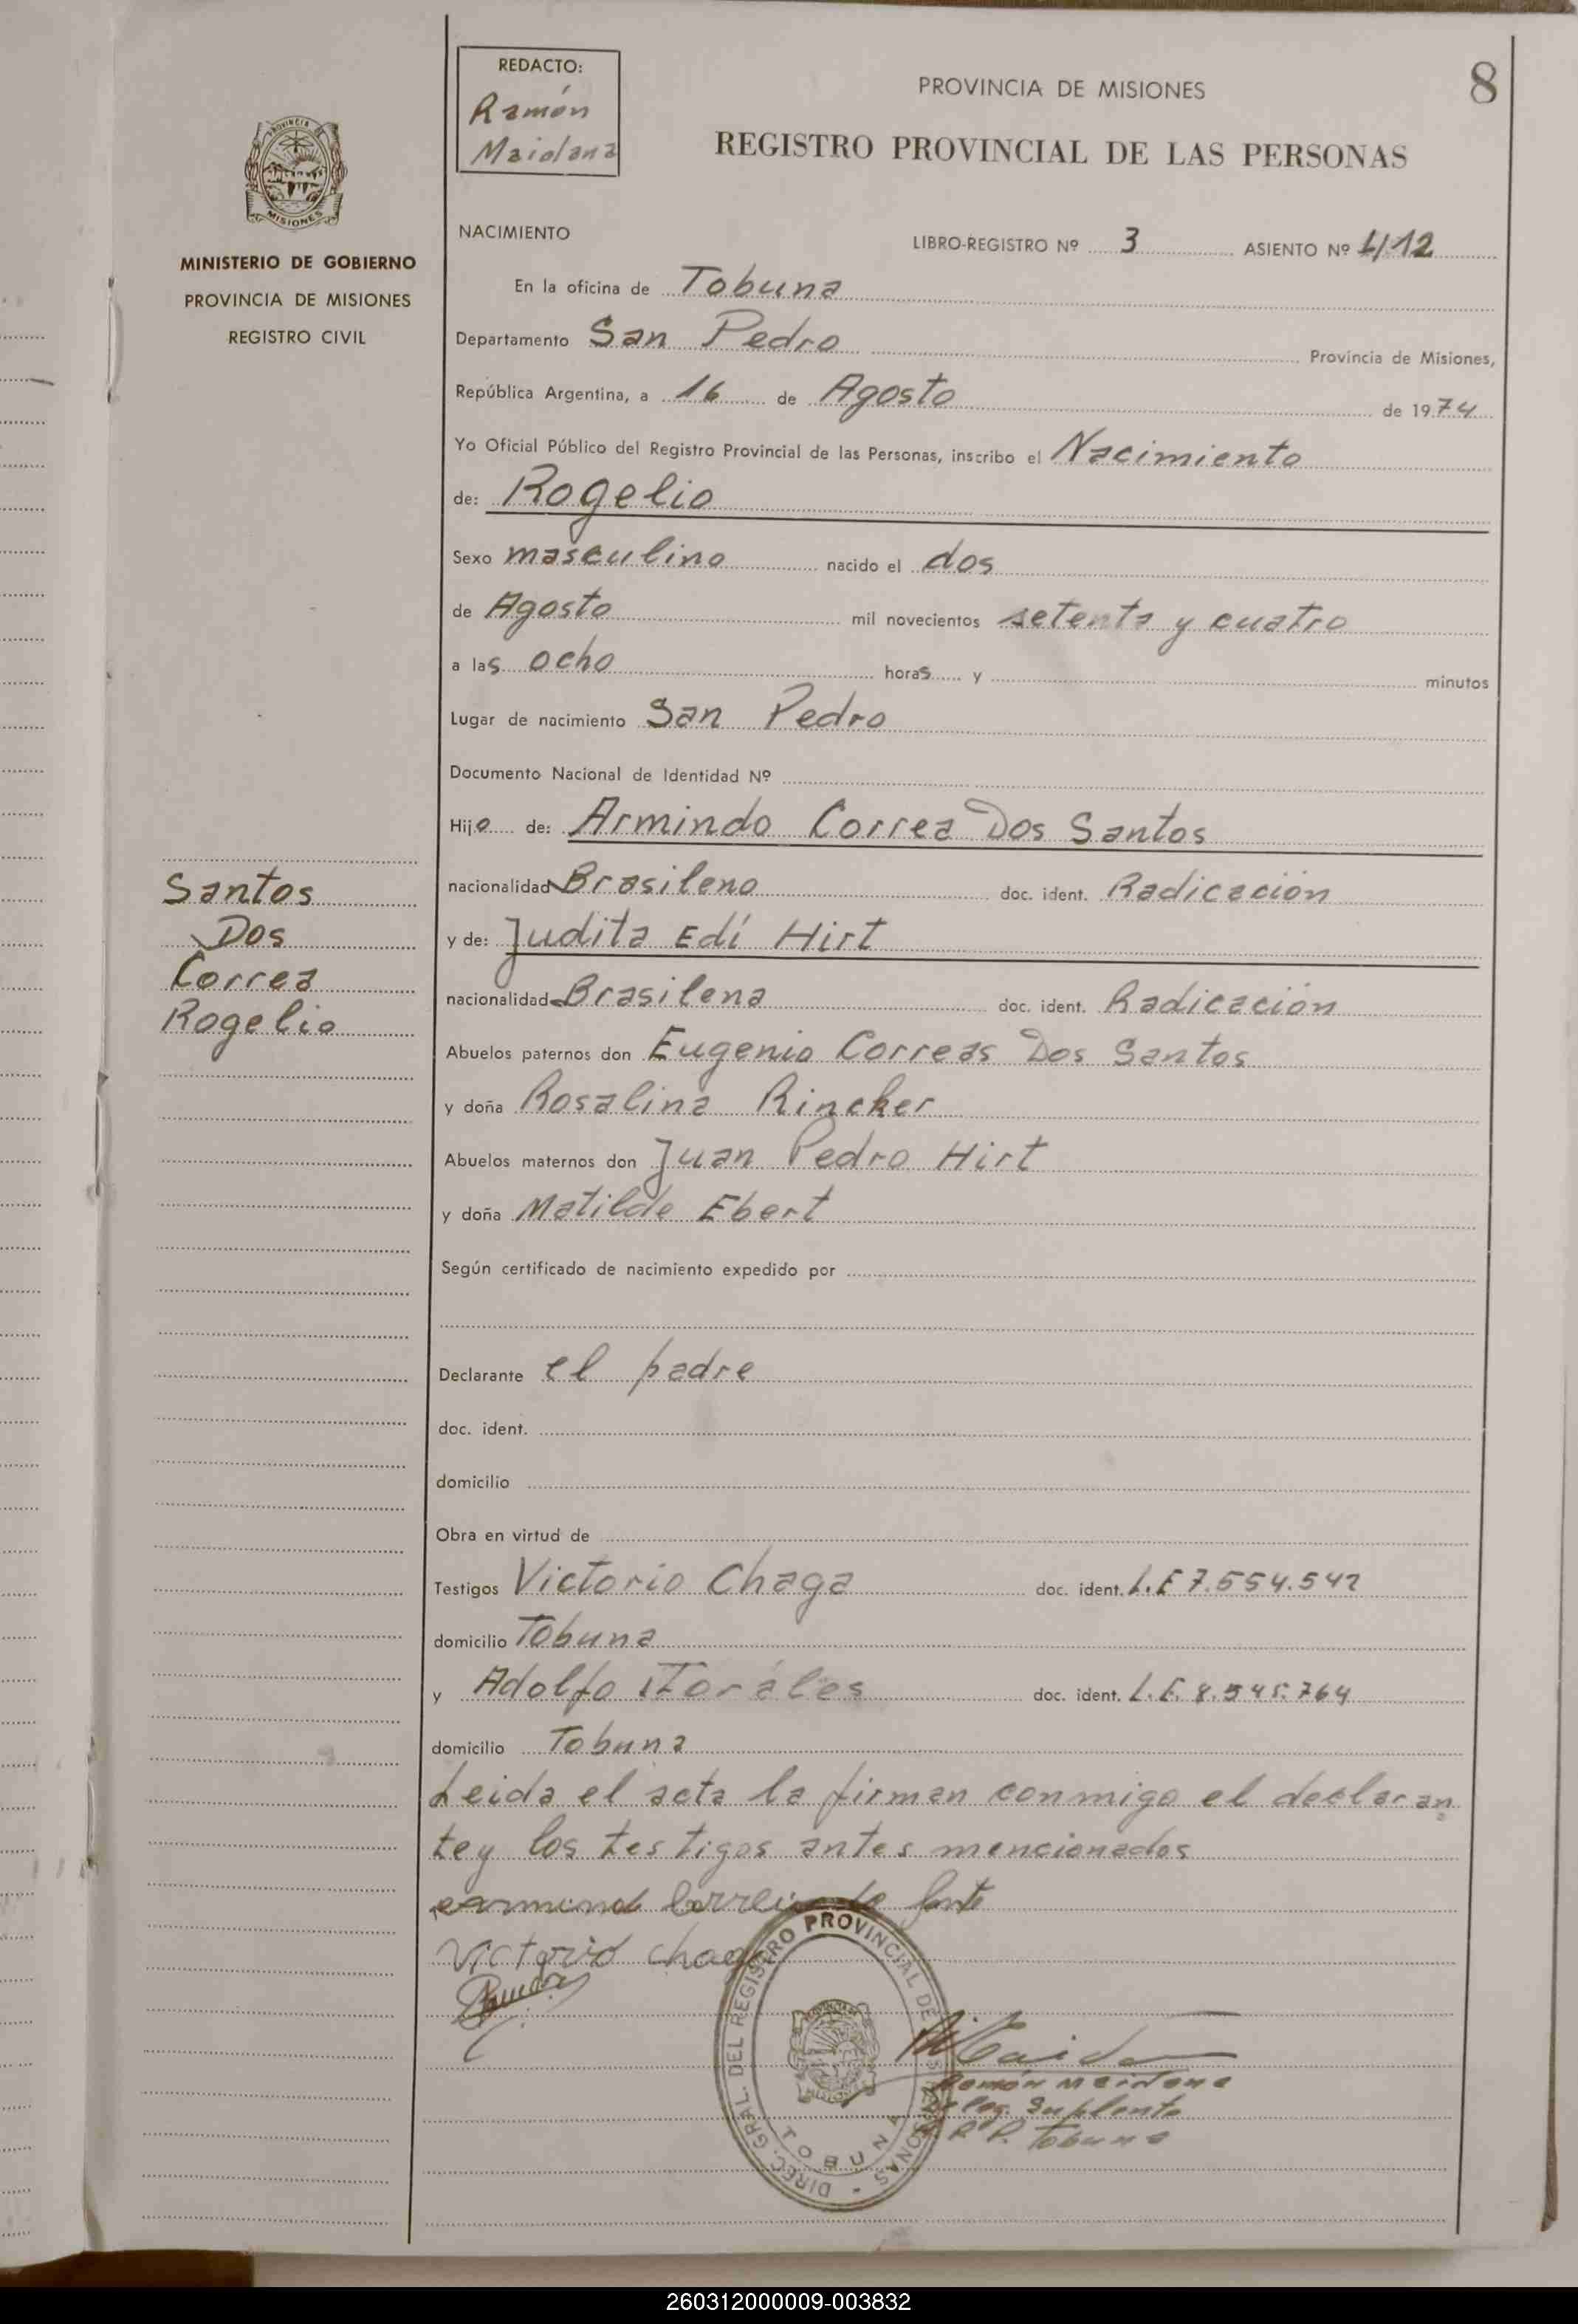 8
REDACTO:
Ramón
Maidana
PROVINCIA DE MISIONES
REGISTRO PROVINCIAL DE LAS PERSONAS
MINISTERIO DE GOBIERNO
PROVINCIA DE MISIONES
REGISTRO CIVIL
NACIMIENTO LIBRO-REGISTRO Nº 3 ASIENTO Nº 412
En la oficina de Tobuna
Departamento San Pedro Provincia de Misiones,
República Argentina, a 16 de Agosto de 1974
Yo Oficial Público del Registro Provincial de las Personas, inscribo el Nacimiento
de: Rogelio
Sexo masculino nacido el dos
de Agosto mil novecientos setenta y cuatro
a las ocho horas y minutos
Lugar de nacimiento San Pedro
Documento Nacional de Identidad Nº
Hijo de: Armindo Correa Dos Santos
nacionalidad Brasileno doc. ident. Radicación
y de: Judita Edí Hirt
nacionalidad Brasilena doc. ident. Radicación
Abuelos paternos don Eugenio Correas Dos Santos
y doña Rosalina Rincker
Abuelos maternos don Juan Pedro Hirt
y doña Matilde Ebert
Según certificado de nacimiento expedido por
Santos
Dos
Correa
Rogelio
Declarante el padre
doc. ident.
domicilio
Obra en virtud de
Testigos Victorio Chaga doc. ident. L.E 7.554.542
domicilio Tobuna
y Adolfo Toráles doc. ident. L.E. 8.545.764
domicilio Tobuna
Leida el acta la firman conmigo el declaran
te y los testigos antes mencionados
Victorio chaga
DIREC. GRAL. DEL REGISTRO PROVINCIAL DE LAS PERSONAS
TOBUNA
Ramón Maidana
Deleg. Suplente
R.P. Tobuna
260312000009-003832